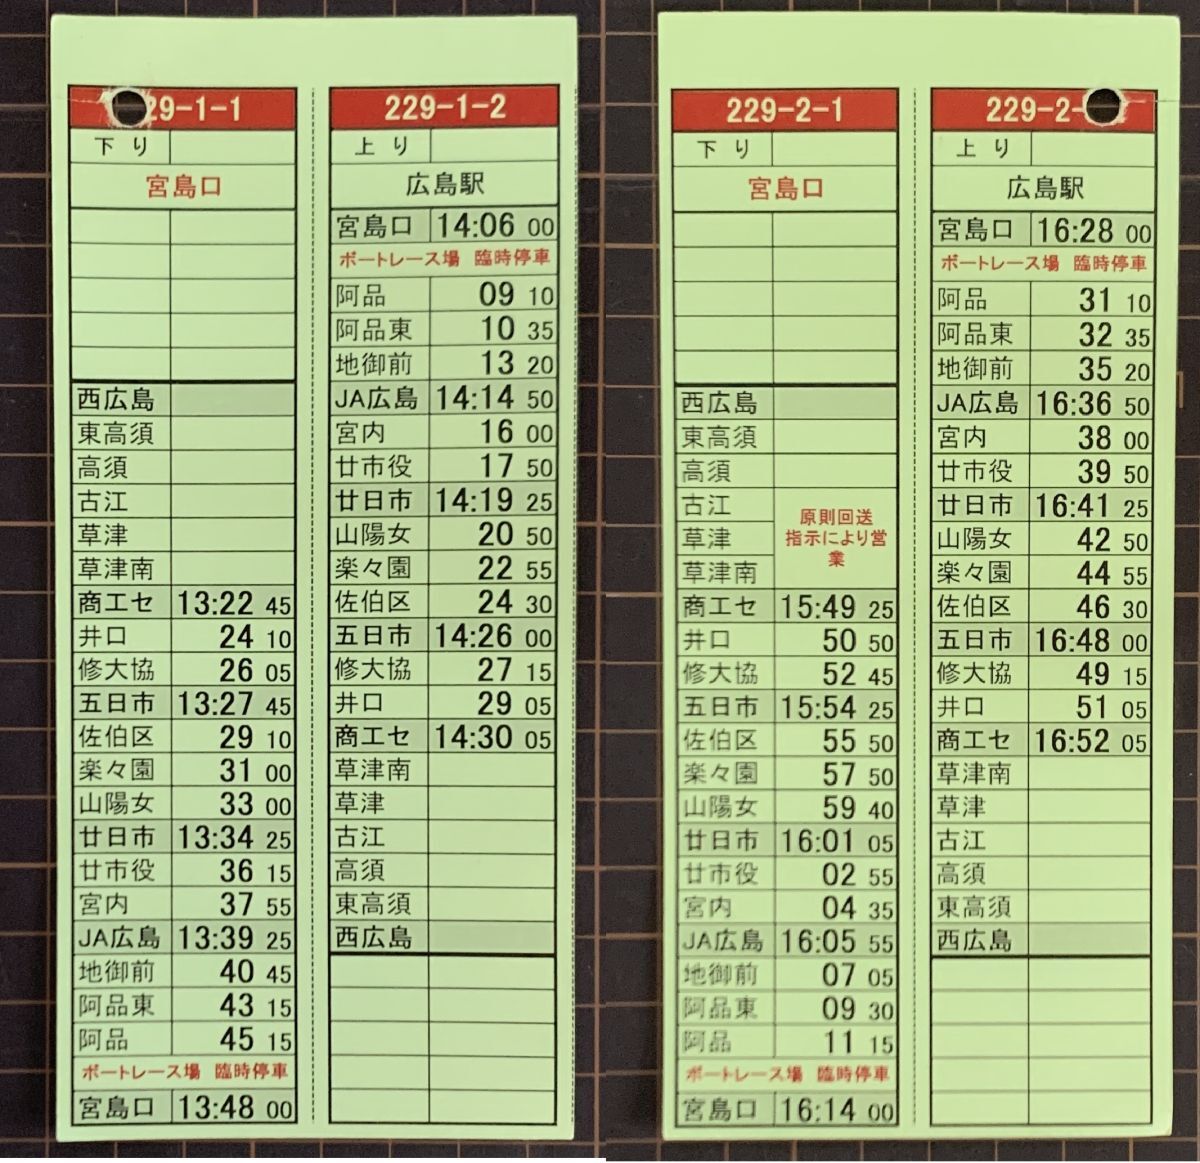 29-1-1
下り
宮島口
西広島
東高須
高須
古江
草津
草津南
商工セ 13:22 45
井口 24 10
修大協 26 05
五日市 13:27 45
佐伯区 29 10
楽々園 31 00
山陽女 33 00
廿日市 13:34 25
廿市役 36 15
宮内 37 55
JA広島 13:39 25
地御前 40 45
阿品東 43 15
阿品 45 15
ボートレース場 臨時停車
宮島口 13:48 00
229-1-2
上り
広島駅
宮島口 14:06 00
ボートレース場 臨時停車
阿品 09 10
阿品東 10 35
地御前 13 20
JA広島 14:14 50
宮内 16 00
廿市役 17 50
廿日市 14:19 25
山陽女 20 50
楽々園 22 55
佐伯区 24 30
五日市 14:26 00
修大協 27 15
井口 29 05
商工セ 14:30 05
草津南
草津
古江
高須
東高須
西広島
229-2-1
下り
宮島口
西広島
東高須
高須
古江
草津
草津南
原則回送
指示により営
業
商工セ 15:49 25
井口 50 50
修大協 52 45
五日市 15:54 25
佐伯区 55 50
楽々園 57 50
山陽女 59 40
廿日市 16:01 05
廿市役 02 55
宮内 04 35
JA広島 16:05 55
地御前 07 05
阿品東 09 30
阿品 11 15
ボートレース場 臨時停車
宮島口 16:14 00
229-2-
上り
広島駅
宮島口 16:28 00
ボートレース場 臨時停車
阿品 31 10
阿品東 32 35
地御前 35 20
JA広島 16:36 50
宮内 38 00
廿市役 39 50
廿日市 16:41 25
山陽女 42 50
楽々園 44 55
佐伯区 46 30
五日市 16:48 00
修大協 49 15
井口 51 05
商工セ 16:52 05
草津南
草津
古江
高須
東高須
西広島